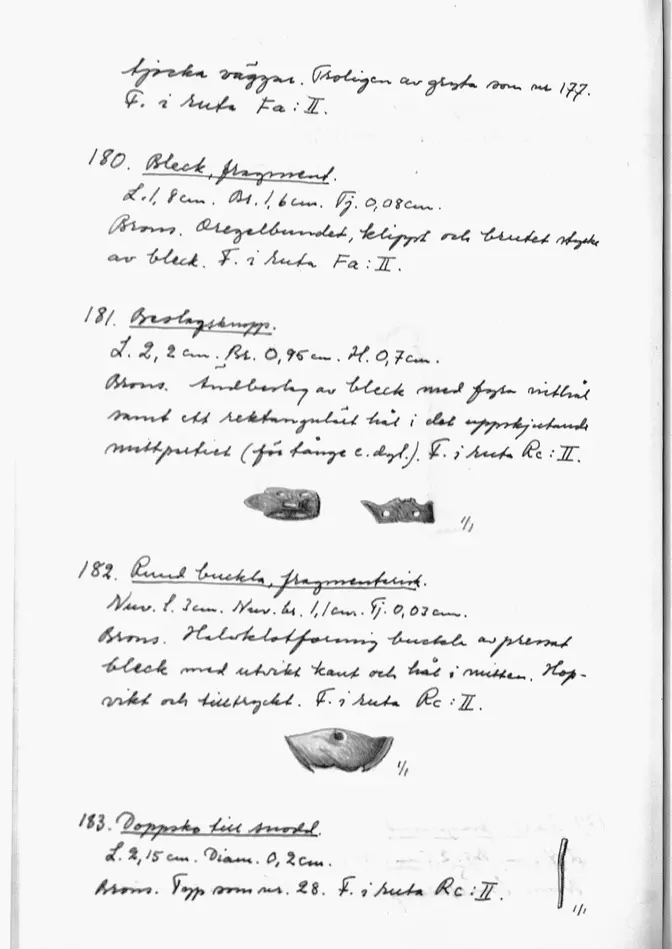 tjocka väggar. Troligen av gryta som nr 177.
F. i ruta Fa:II.
180. Bleck, fragment.
L. 1,8 cm. Br. 1,6 cm. Tj. 0,08 cm.
Brons. Oregelbundet, klippt och brutet stycke
av bleck. F. i ruta Fa:II.
181. Beslagsknapp.
L. 2,2 cm. Br. 0,95 cm. H. 0,7 cm.
Brons. Ändbeslag av bleck med fyra nithål
samt ett rektangulärt hål i det uppskjutande
mittpartiet (för tånge e. dyl.). F. i ruta Rc:II.
1/1
182. Rund buckla, fragmentarisk.
Nuv. l. 3 cm. Nuv. br. 1,1 cm. Tj. 0,03 cm.
Brons. Halvklotformig buckla av pressat
bleck med utvikt kant och hål i mitten. Hop-
vikt och tilltryckt. F. i ruta Rc:II.
1/1
183. Doppsko till snodd.
L. 2,15 cm. Diam. 0,2 cm.
Brons. Typ som nr. 28. F. i ruta Rc:II.
1/1